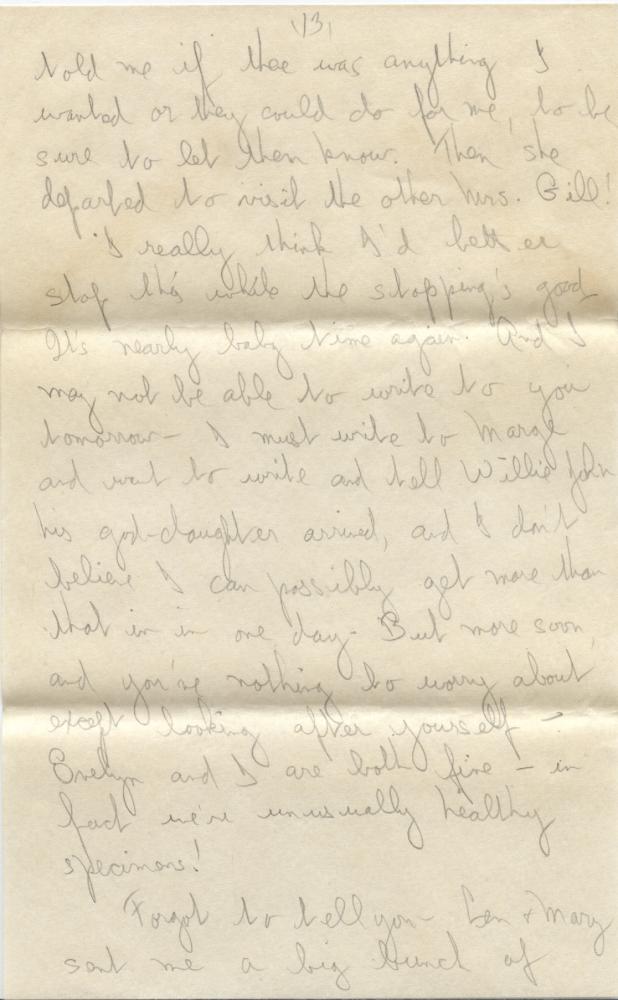 13
told me if there was anything I
wanted or they could do for me, to be
sure to let them know. Then she
departed to visit the other Mrs. Gill!
I really think I'd better
stop this while the stopping's good
It's nearly baby time again. And I
may not be able to write to you
tomorrow - I must write to Marge
and want to write and tell Willie John
his god-daughter arrived, and I don't
believe I can possibly get more than
that in in one day. But more soon,
and you've nothing to worry about
except looking after yourself -
Evelyn and I are both fine - in
fact we're unusually healthy
specimens!
Forgot to tell you - Len + Mary
sent me a big bunch of